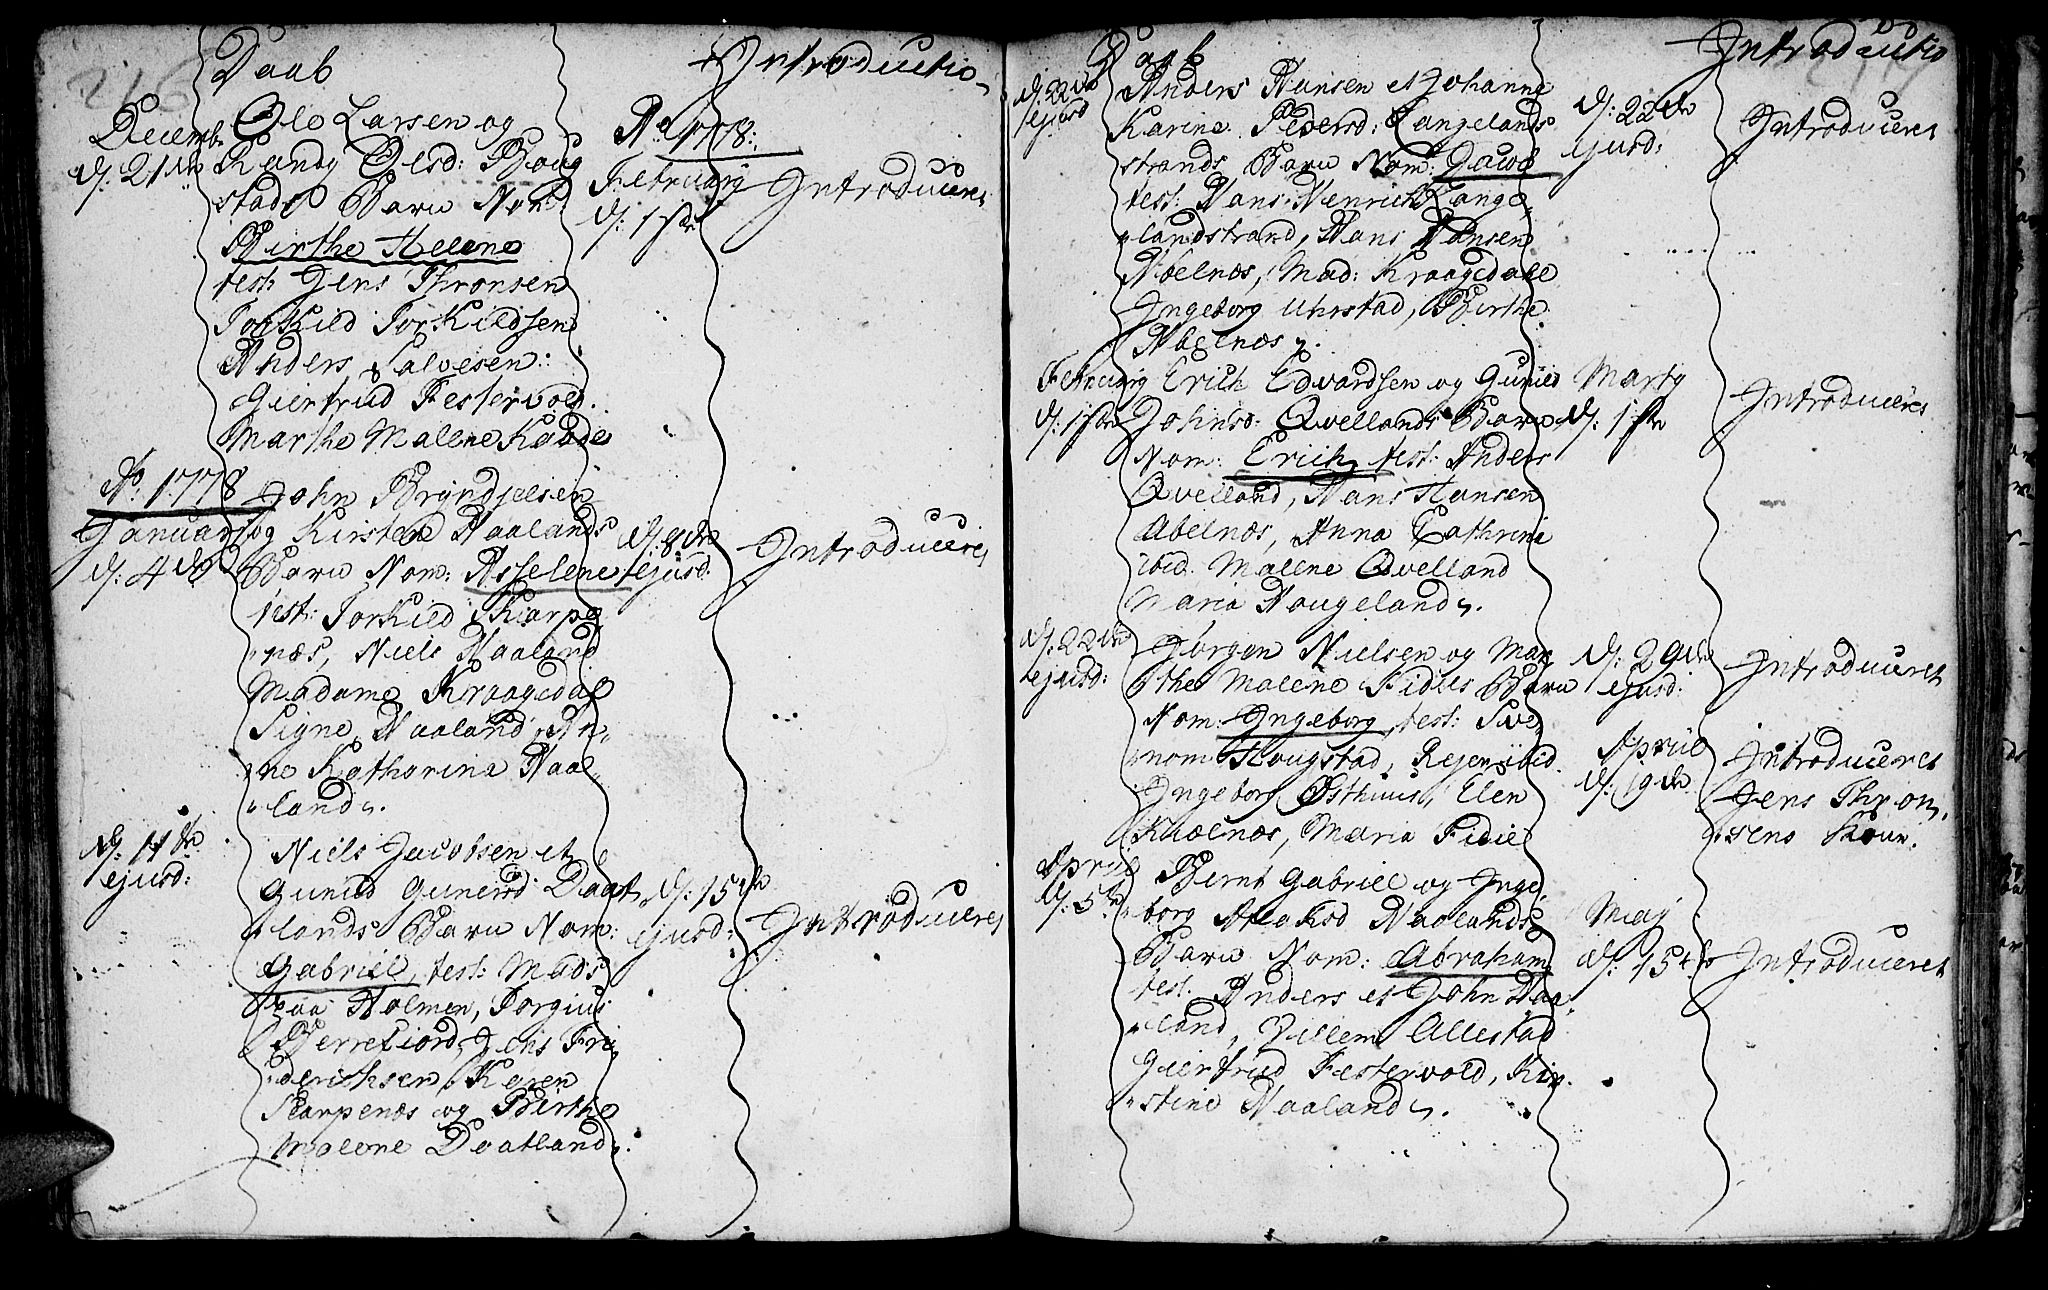 216
Daab
Introductio
Decembr
d: 21de
Ole Larsen og
Randj Olsd: Boug
stads Barn Nom:
Birthe Helene
test: Jens Thronsen
Torkild Torkildsen
Anders Salvesen:
Giertrud Festervold.
Marthe Malene Kaade
Ao. 1778:
Februarij
d: 1ste
Introduceret
Ao. 1778
Januarij
d: 4de
John Bryndjelsen
og Kirsten Naalands
Barn Nom: Asselene
test: Torkild Skarpe
næs, Niels Naaland
Madame Kraagedal
Signe Naaland, An
ne Katharina Naa
land.
d: 8de
ejusd:
Introduceret
d: 11te
ejusd:
Niels Jacobsen et
Gunild Gunersd: Daat
lands Barn Nom:
Gabriel, test: Mads
paa Holmen, Torgius
Berrefiord, Jens Fri
derichsen, Karen
Skarpenæs og Birthe
Malene Doatland.
d: 15de
ejusd:
Introduceret
Daab
Introductio
217
d: 22de
ejusd
Anders Hansen et Johanna
Karine Pedersd: Langelands
strands Barn Nom: Jacob
test: Hans Henrich Lange
landstrand, Hans Hansen
Abelnæs, Mad: Kraagedahl
Ingeborg Uhrstad, Birthe
Abelnæs.
d: 22de
ejusd:
Introduceret
Februarij
d: 1ste
Erich Edvardsen og Gunild
Johnsd: Qvellands Barn
Nom: Erich, test: Anders
Qvelland, Hans Hansen
Abelnæs, Anna Cathrina
ibid. Malene Qvelland
Maria Hougeland.
Martij
d: 1ste
Introduceret
d: 22de
ejusd:
Jørgen Nielsen og Mar
the Malene Fidies Barn
Nom: Ingeborg, test: Sve
nom Hougstad, Rejer ibid.
Ingeborg Østhuus, Elen
Kualnæs, Maria Fidie
d: 29de
ejusd:
Introduceret
April
d: 19de
Introduceret
Jens Thron
sens Kone.
April
d: 5te
Bernt Gabriel og Inge
borg Aslaksd Naalands
Barn Nom: Abraham
test: Anders et John Naa
land, Villem Allestad
Giertrud Festervold, Kir
stine Naaland.
Maij
d: 15de
Introduceret